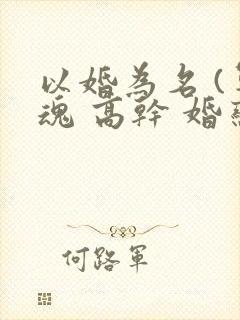 以婚為名(
魂 高幹 婚
何路軍